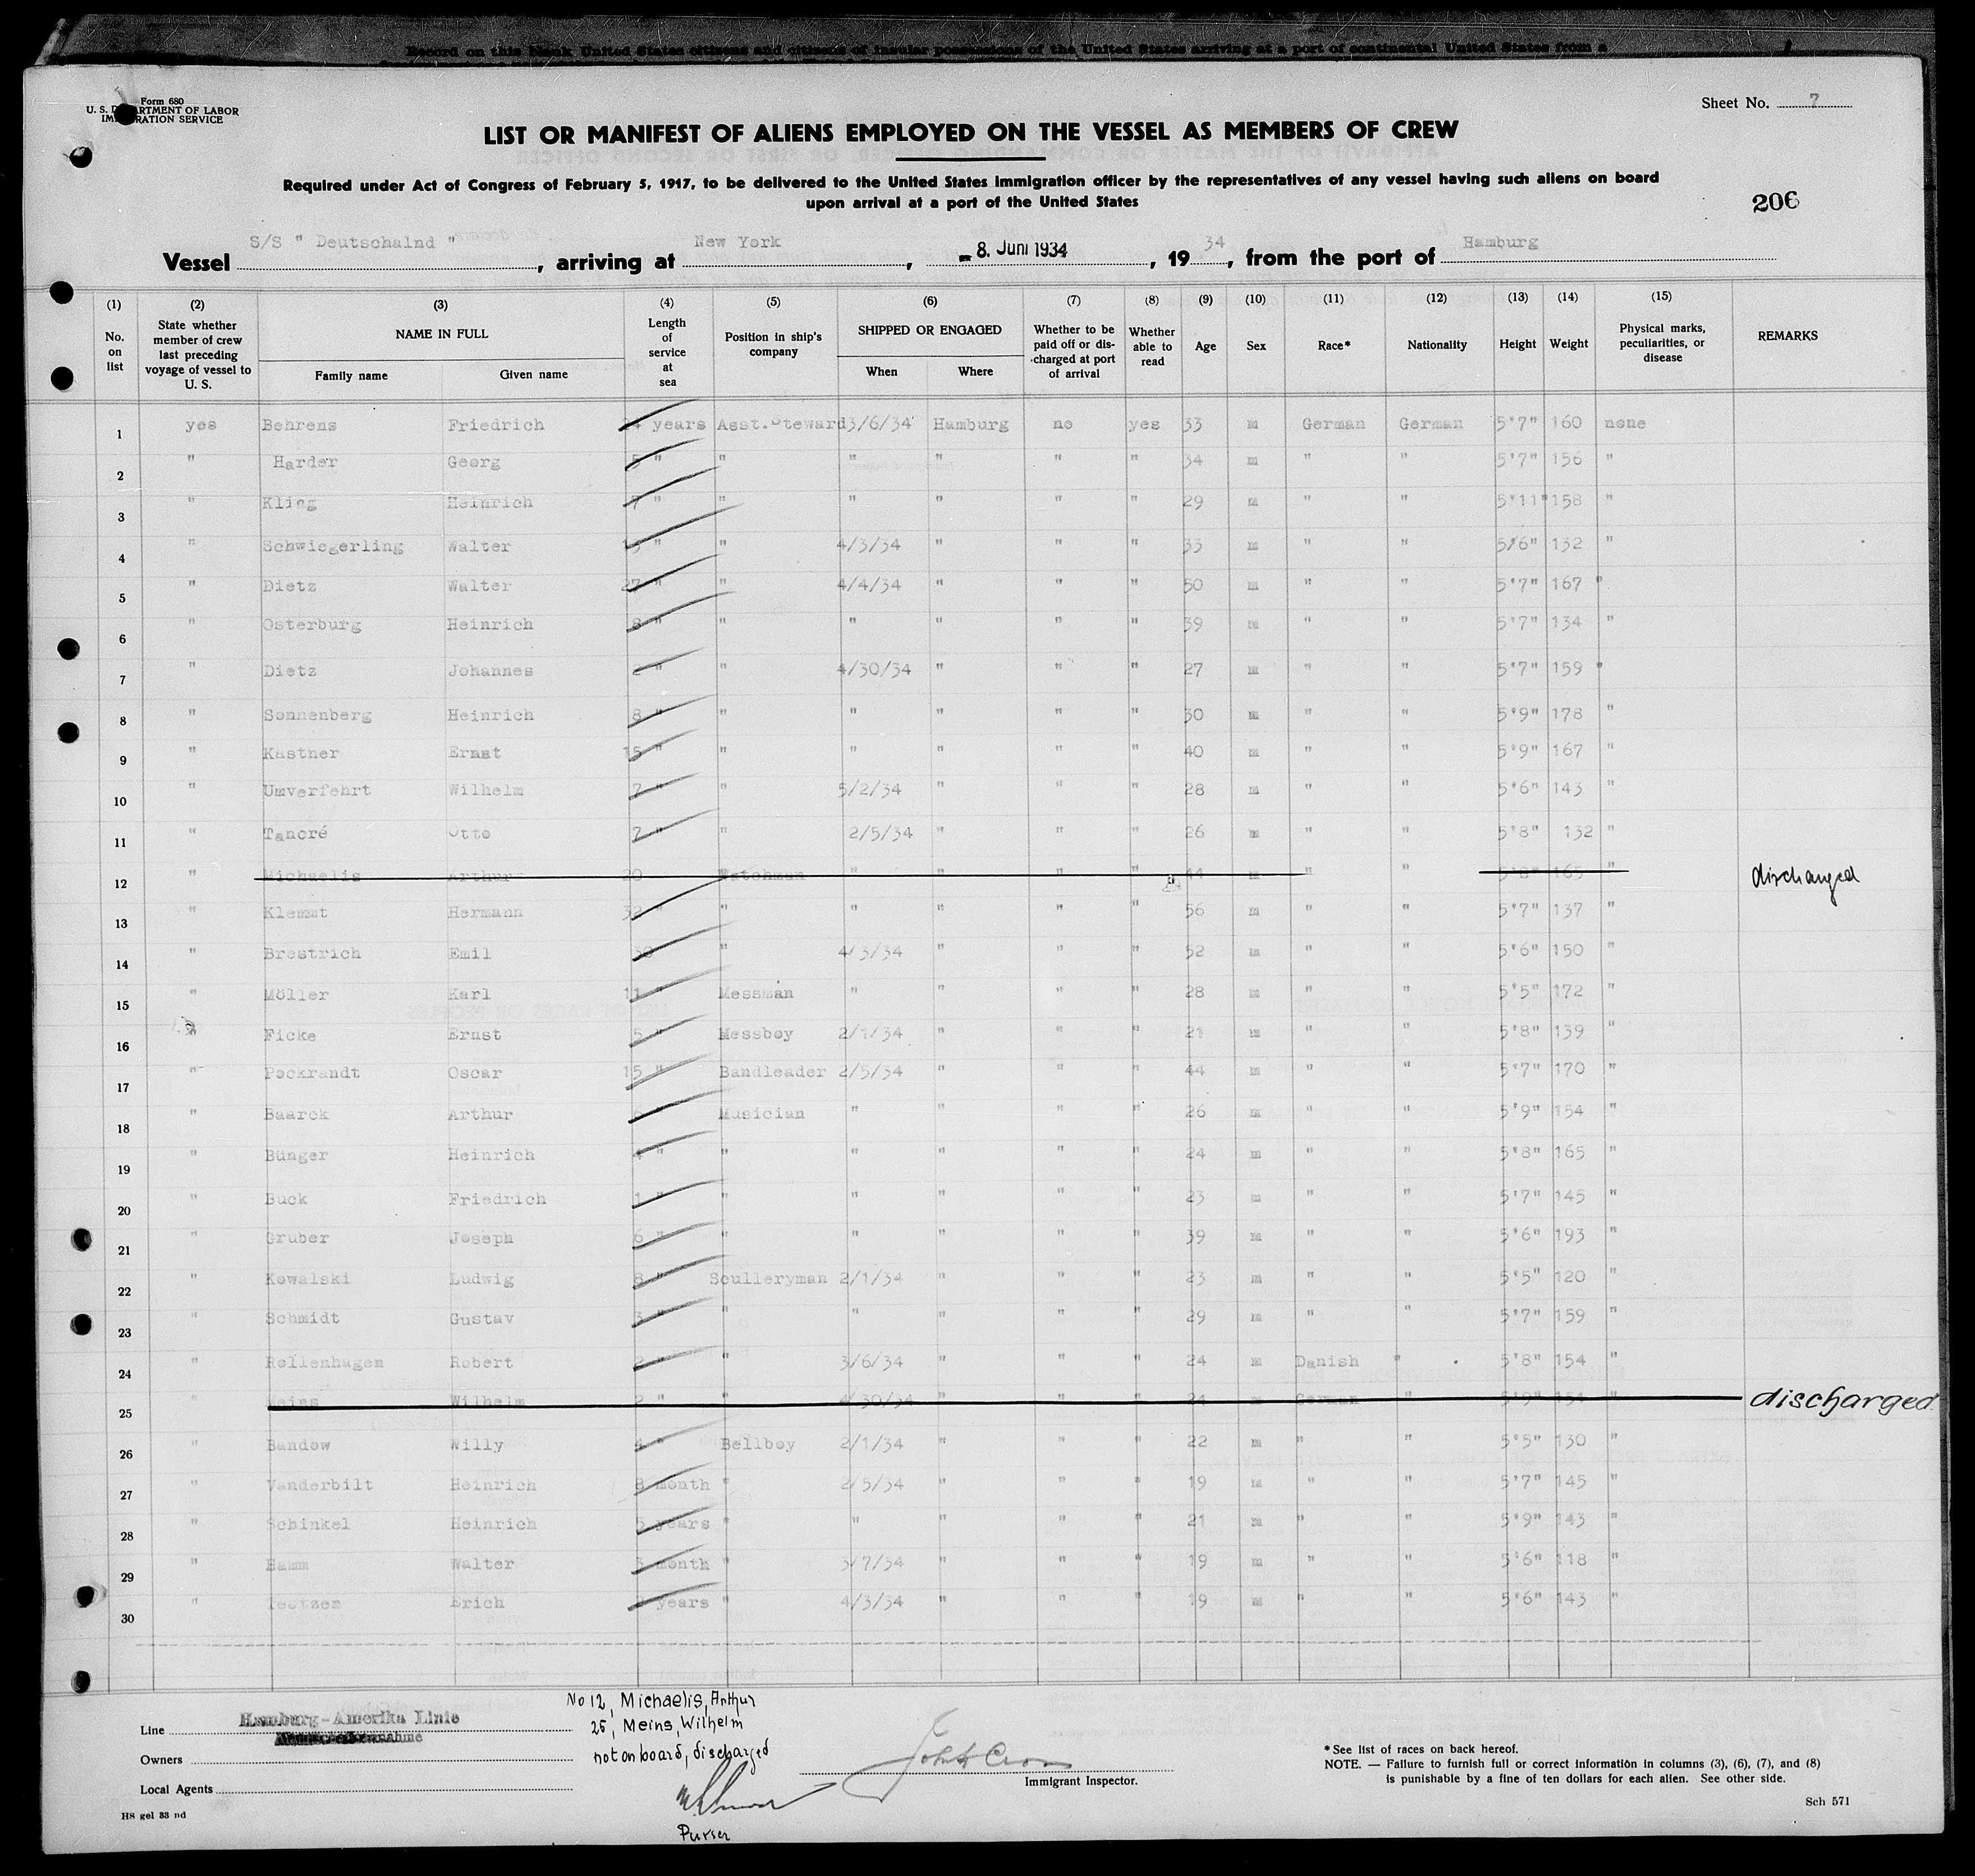 Record on this blank United States citizens and citizens of insular possessions of the United States arriving at a port of continental United States from a
Form 680
U. S. DEPARTMENT OF LABOR
IMMIGRATION SERVICE
Sheet No. 7
LIST OR MANIFEST OF ALIENS EMPLOYED ON THE VESSEL AS MEMBERS OF CREW
Required under Act of Congress of February 5, 1917, to be delivered to the United States immigration officer by the representatives of any vessel having such aliens on board
upon arrival at a port of the United States
206
Vessel S/S " Deutschalnd ", arriving at New York, - 8. Juni 1934, 19 34, from the port of Hamburg
(1) (2) (3) (4) (5) (6) (7) (8) (9) (10) (11) (12) (13) (14) (15)
No. on list State whether member of crew last preceding voyage of vessel to U. S. NAME IN FULL Family name Given name Length of service at sea Position in ship's company SHIPPED OR ENGAGED When Where Whether to be paid off or discharged at port of arrival Whether able to read Age Sex Race* Nationality Height Weight Physical marks, peculiarities, or disease REMARKS
1 yes Behrens Friedrich years Asst.Steward 3/6/34 Hamburg no yes 33 m German German 5'7" 160 none
2 " Harder Georg 5 " " " " " " 34 m " " 5'7" 156 "
3 " Kling Heinrich 7 " " " " " " 29 m " " 5'11" 158 "
4 " Schwiegerling Walter " " 4/3/34 " " " 33 m " " 5/6" 132 "
5 " Dietz Walter 27 " " 4/4/34 " " " 50 m " " 5'7" 167 "
6 " Osterburg Heinrich 8 " " " " " " 39 m " " 5'7" 134 "
7 " Dietz Johannes " " 4/30/34 " " " 27 m " " 5'7" 159 "
8 " Sonnenberg Heinrich 8 " " " " " " 30 m " " 5'9" 178 "
9 " Kastner Ernst 15 " " " " " " 40 m " " 5'9" 167 "
10 " Umverfehrt Wilhelm 7 " " 5/2/34 " " " 28 m " " 5'6" 143 "
11 " Tancré Otto 7 " " 2/5/34 " " " 26 m " " 5'8" 132 "
12 " Michaelis Arthur 20 Watchman " " " " 44 m " " 5'8" 165 " discharged
13 " Klemmt Hermann 32 " " " " " " 56 m " " 5'7" 137 "
14 " Brestrich Emil " 4/3/34 " " " 52 m " " 5'6" 150 "
15 " Möller Karl 11 " Messman " " " " 28 m " " 5'5" 172 "
16 " Ficke Ernst 5 " Messboy 2/1/34 " " " 21 m " " 5'8" 139 "
17 " Pockrandt Oscar 15 " Bandleader 2/5/34 " " " 44 m " " 5'7" 170 "
18 " Baarck Arthur " Musician " " " " 26 m " " 5'9" 154 "
19 " Bünger Heinrich 4 " " " " " " 24 m " " 5'8" 165 "
20 " Buck Friedrich 1 " " " " " " 23 m " " 5'7" 145 "
21 " Gruber Joseph 6 " " " " " " 39 m " " 5'6" 193 "
22 " Kowalski Ludwig 8 " Sculleryman 2/1/34 " " " 23 m " " 5'5" 120 "
23 " Schmidt Gustav 3 " " " " " " 29 m " " 5'7" 159 "
24 " Rollenhagen Robert 2 " " 3/6/34 " " " 24 m Danish " 5'8" 154 "
25 " Meins Wilhelm 2 " " 4/30/34 " " " 24 m German " 5'9" 154 " discharged
26 " Bandow Willy 4 " Bellboy 2/1/34 " " " 22 m " " 5'5" 130 "
27 " Vanderbilt Heinrich 8 month " 2/5/34 " " " 19 m " " 5'7" 145 "
28 " Schinkel Heinrich 5 years " " " " " 21 m " " 5'9" 143 "
29 " Hamm Walter 3 month " 3/7/34 " " " 19 m " " 5'6" 118 "
30 " Teetzen Erich years " 4/3/34 " " " 19 m " " 5'6" 143 "
Line Hamburg-Amerika Linie
Owners
Local Agents
HS gel 33 nd
No 12, Michaelis, Arthur
25, Meins, Wilhelm
not on board, discharged
Purser
Immigrant Inspector.
* See list of races on back hereof.
NOTE. — Failure to furnish full or correct information in columns (3), (6), (7), and (8)
is punishable by a fine of ten dollars for each alien. See other side.
Sch 571